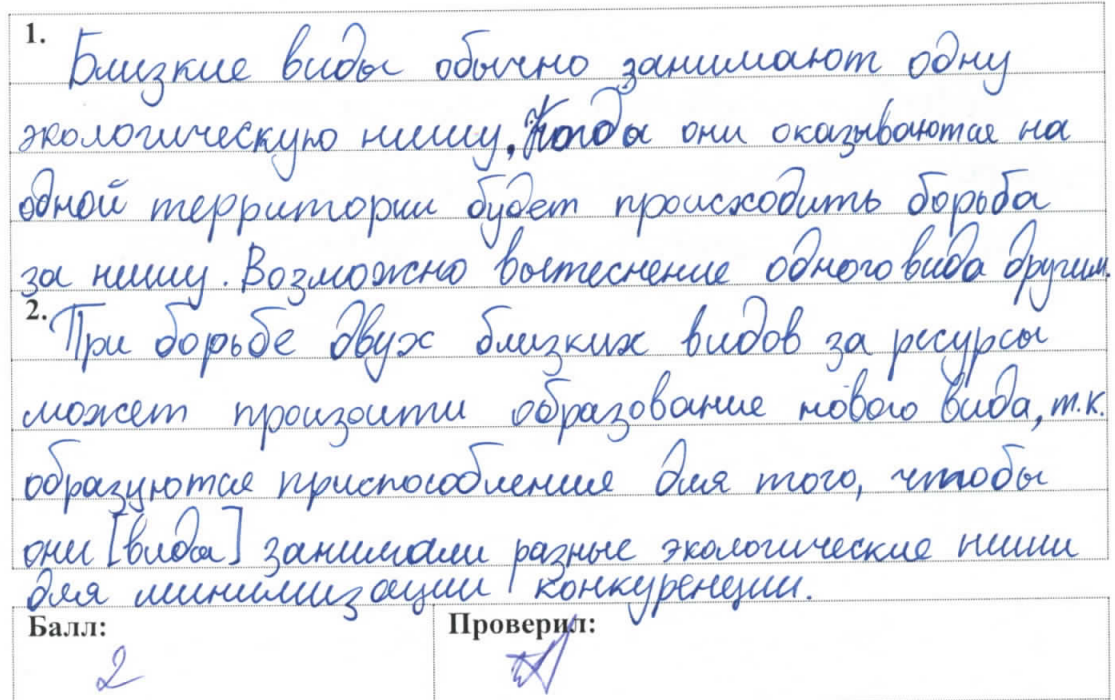 1. Близкие виды обычно занимают одну
экологическую нишу. Когда они оказываются на
одной территории будет происходить борьба
за нишу. Возможно вытеснение одного вида другим.
2. При борьбе двух близких видов за ресурсы
может произоити образование нового вида, т.к.
образуются приспособления для того, чтобы
они [вида] занимали разные экологические ниши
для минимизации конкуренции.
Балл: Проверил:
2